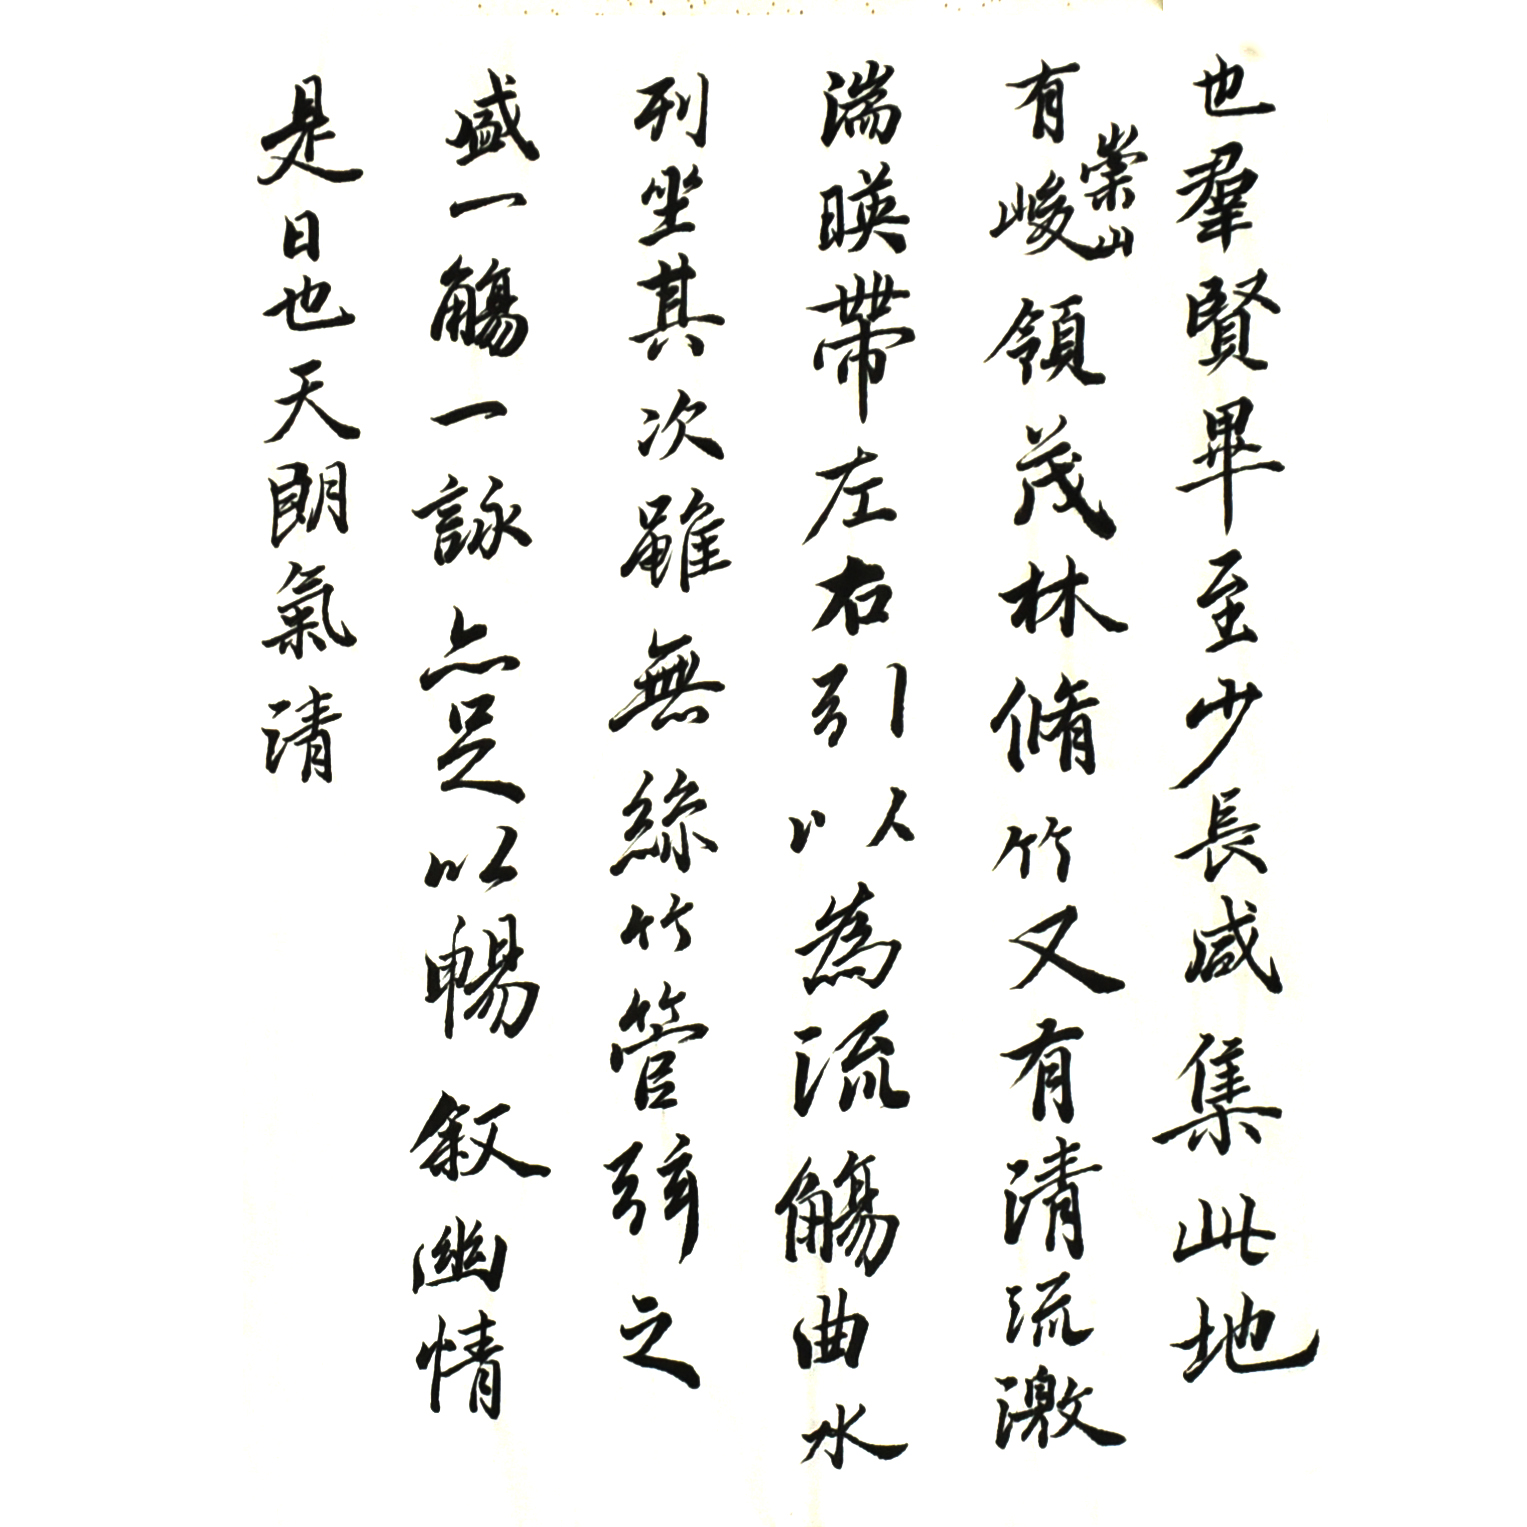 也羣賢畢至少長咸集此地
有崇山峻領茂林脩竹又有清流激
湍暎帶左右引以為流觴曲水
列坐其次雖無絲竹管弦之
盛一觴一詠亦足以暢敘幽情
是日也天朗氣清